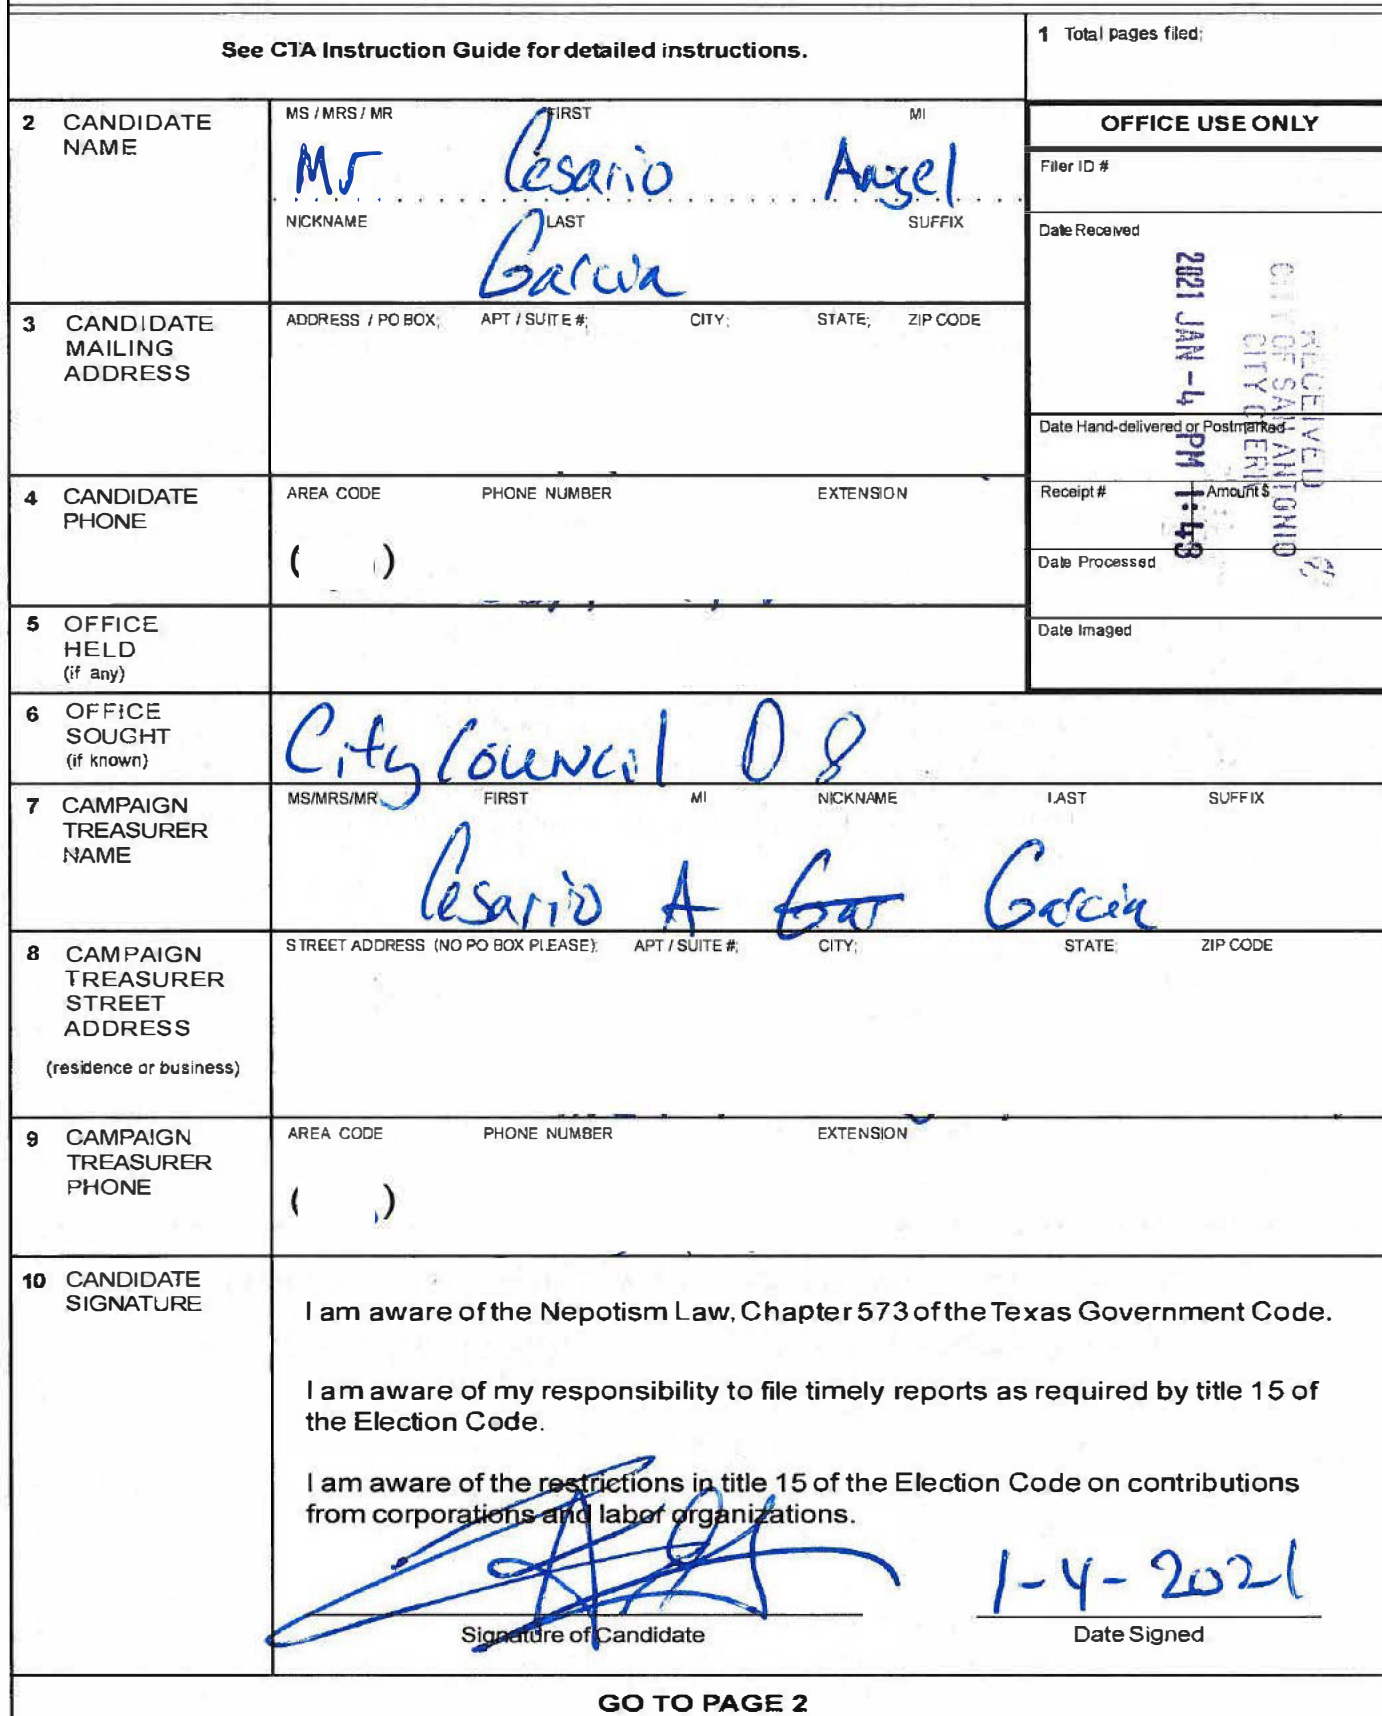 See CTA Instruction Guide for detailed instructions.
1 Total pages filed:
2 CANDIDATE NAME
MS / MRS / MR FIRST MI
Mr Cesario Angel
NICKNAME LAST SUFFIX
Garcia
OFFICE USE ONLY
Filer ID #
Date Received
RECEIVED
CITY OF SAN ANTONIO
CITY CLERK
2021 JAN -4 PM 1:43
Date Hand-delivered or Postmarked
Receipt # Amount $
Date Processed
Date Imaged
3 CANDIDATE MAILING ADDRESS
ADDRESS / PO BOX; APT / SUITE #; CITY; STATE; ZIP CODE
4 CANDIDATE PHONE
AREA CODE PHONE NUMBER EXTENSION
( )
5 OFFICE HELD (if any)
6 OFFICE SOUGHT (if known)
City Council D 8
7 CAMPAIGN TREASURER NAME
MS/MRS/MR FIRST MI NICKNAME LAST SUFFIX
Cesario A Gar Garcia
8 CAMPAIGN TREASURER STREET ADDRESS
(residence or business)
STREET ADDRESS (NO PO BOX PLEASE); APT / SUITE #; CITY; STATE; ZIP CODE
9 CAMPAIGN TREASURER PHONE
AREA CODE PHONE NUMBER EXTENSION
( )
10 CANDIDATE SIGNATURE
I am aware of the Nepotism Law, Chapter 573 of the Texas Government Code.
I am aware of my responsibility to file timely reports as required by title 15 of
the Election Code.
I am aware of the restrictions in title 15 of the Election Code on contributions
from corporations and labor organizations.
1-4-2021
Signature of Candidate Date Signed
GO TO PAGE 2